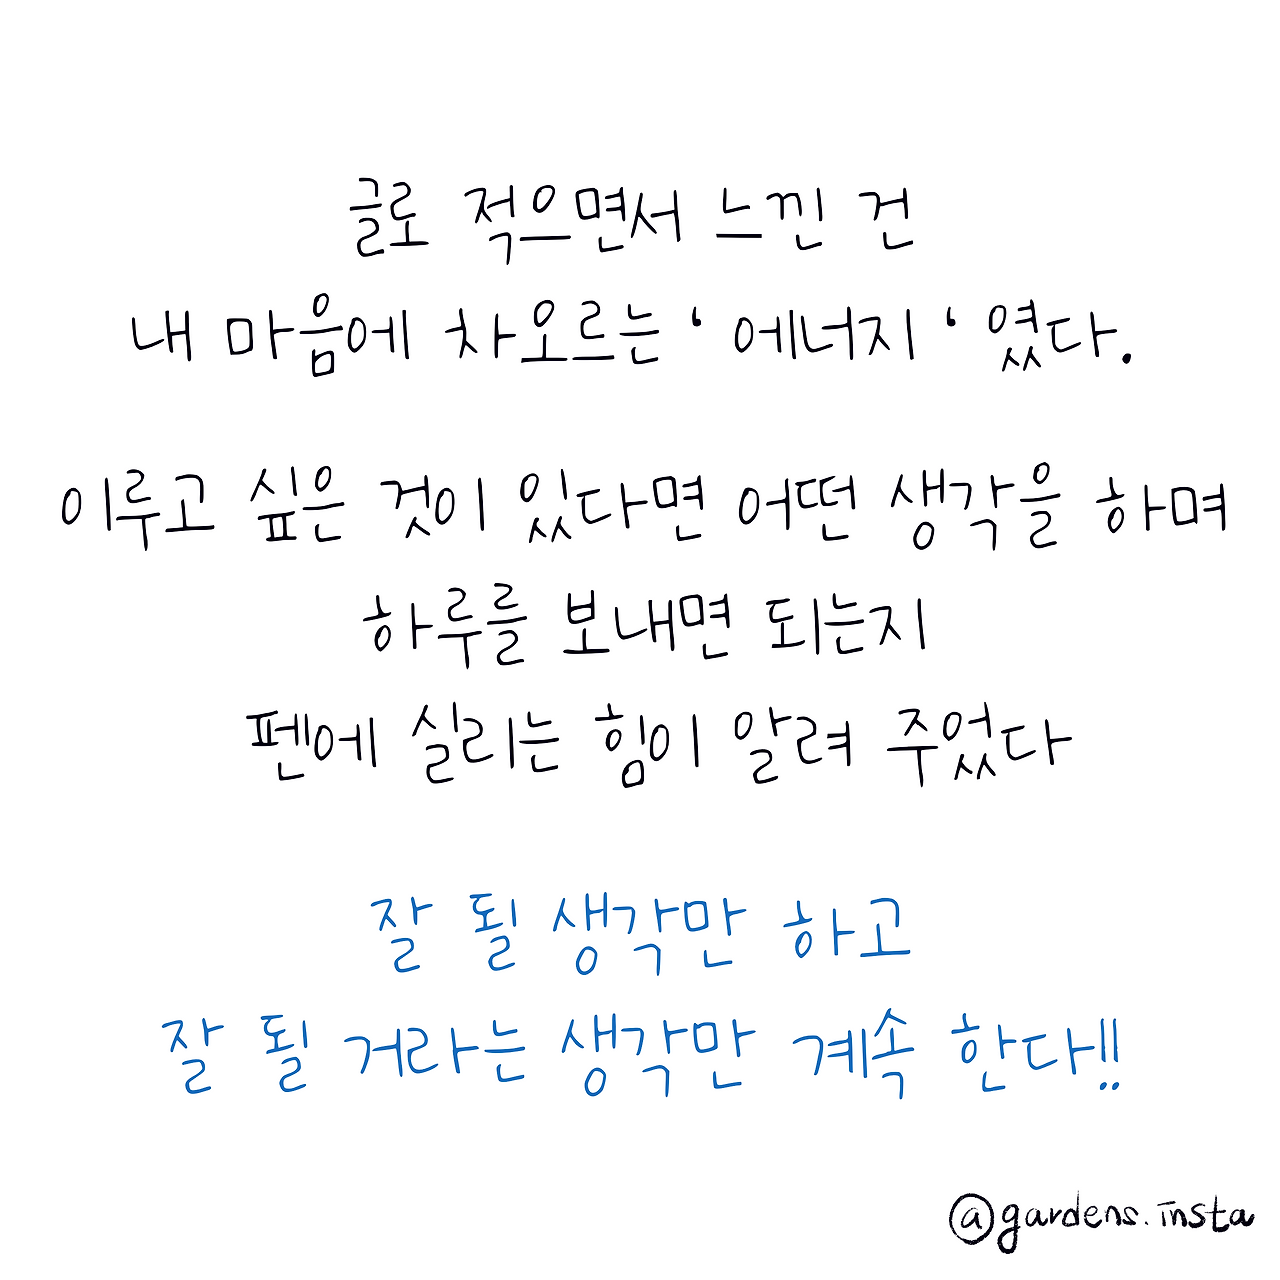 글로 적으면서 느낀 건
내 마음에 차오르는 ‘ 에너지 ‘ 였다.
이루고 싶은 것이 있다면 어떤 생각을 하며
하루를 보내면 되는지
펜에 실리는 힘이 알려 주었다
잘 될 생각만 하고
잘 될 거라는 생각만 계속 한다!!
@gardens.insta